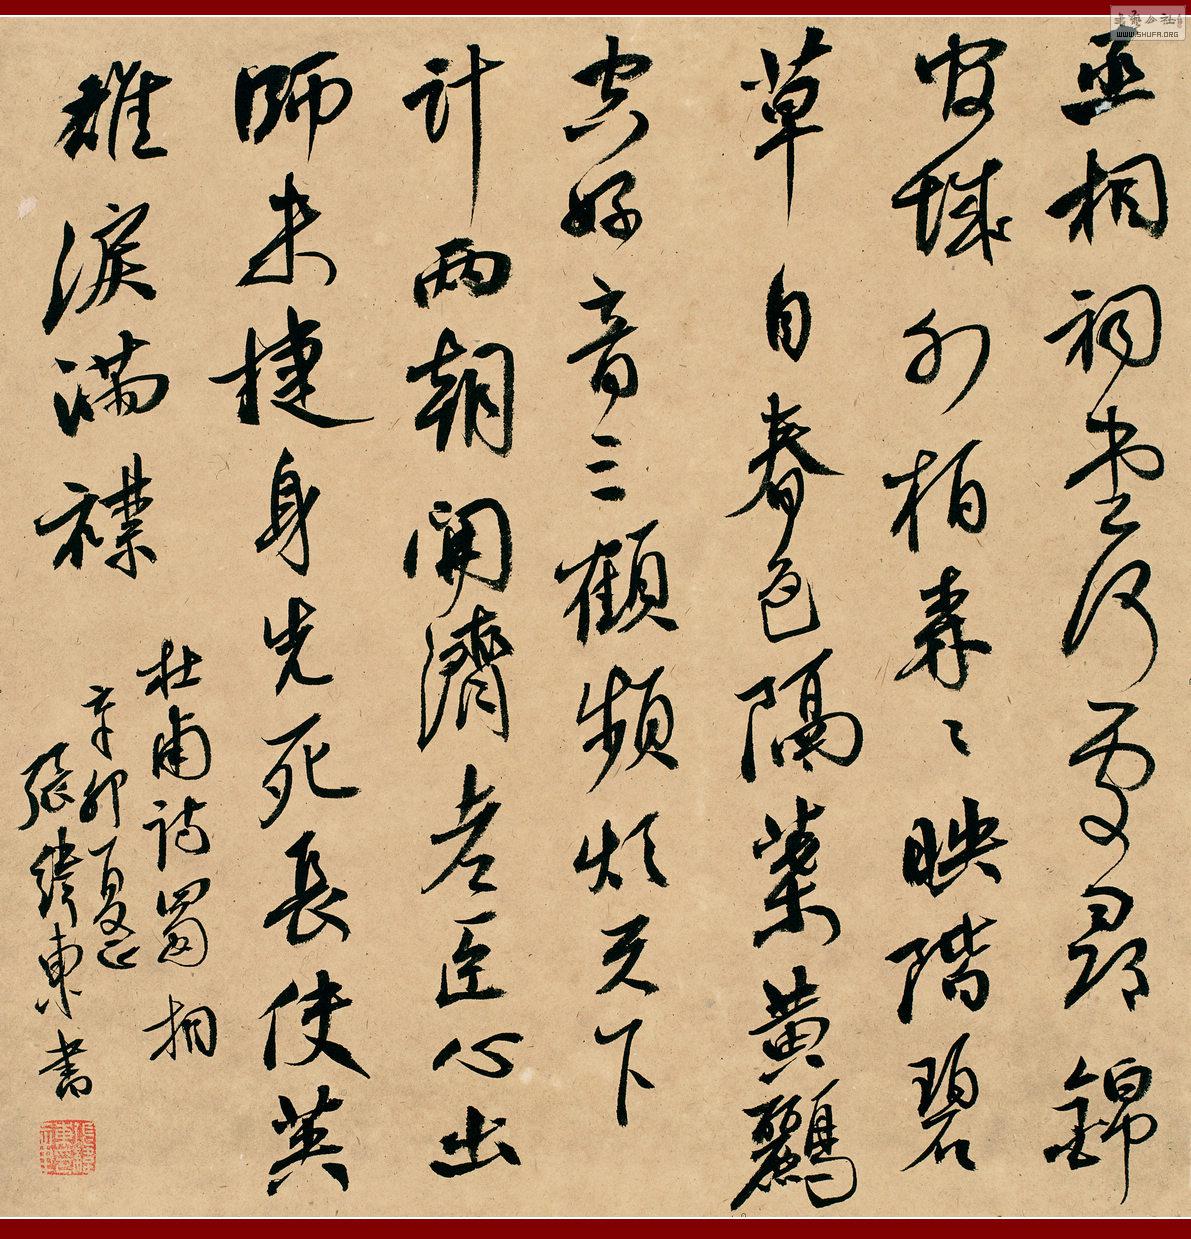 丞相祠堂何處尋錦
官城外柏森々映階碧
草自春色隔葉黃鸝
空好音三顧頻煩天下
計兩朝開濟老臣心出
師未捷身先死長使英
雄淚滿襟
杜甫詩蜀相
辛卯夏
張東書
書藝公社
WWW.SHUFA.ORG